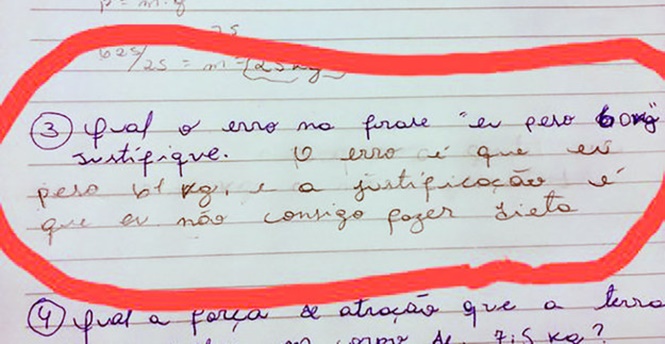 P = m.g
25
625/25 = m = 25kg
③ Qual o erro na frase "eu peso 60kg"
justifique. O erro é que eu
peso 61 kg, e a justificação é
que eu não consigo fazer dieta
④ Qual a força de atração que a terra
corpo de 7,5 kg?